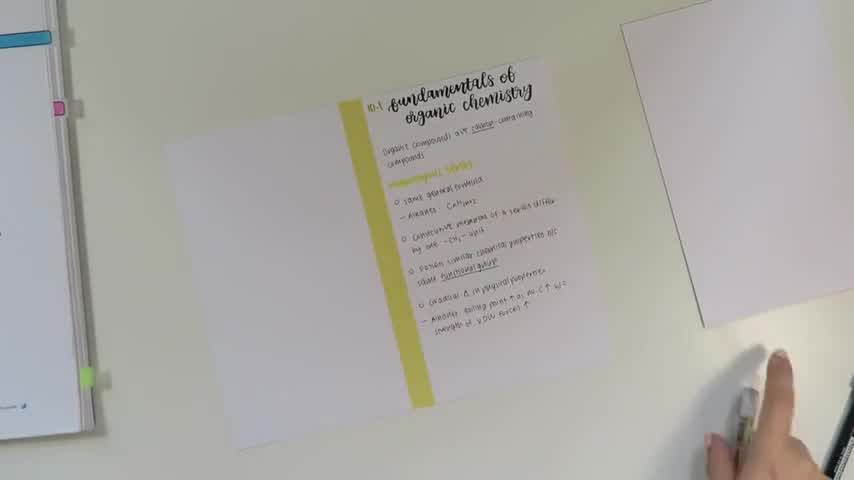 10.1 fundamentals of
organic chemistry
Organic compounds are carbon-containing
compounds
Homologous Series
same general formula
- Alkanes: CnH2n+2
consecutive members of a series differ
by one -CH2- unit
Possess similar chemical properties b/c
same functional group
Gradual Δ in physical properties
- Alkanes: boiling point ↑ as no. C ↑ b/c
strength of VDW forces ↑